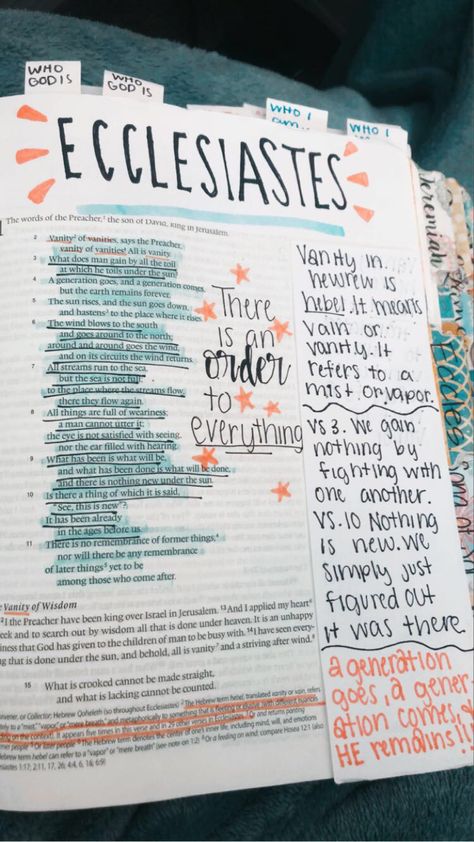 WHO
GOD IS
WHO
GOD IS
WHO I
am...
WHO I
ECCLESIASTES
The words of the Preacher,¹ the son of David, king in Jerusalem.
2 Vanity² of vanities, says the Preacher,
vanity of vanities! All is vanity.
3 What does man gain by all the toil
at which he toils under the sun?
4 A generation goes, and a generation comes,
but the earth remains forever.
5 The sun rises, and the sun goes down,
and hastens³ to the place where it rises.
6 The wind blows to the south
and goes around to the north;
around and around goes the wind,
and on its circuits the wind returns.
7 All streams run to the sea,
but the sea is not full;
to the place where the streams flow,
there they flow again.
8 All things are full of weariness;
a man cannot utter it;
the eye is not satisfied with seeing,
nor the ear filled with hearing.
9 What has been is what will be,
and what has been done is what will be done,
and there is nothing new under the sun.
10 Is there a thing of which it is said,
"See, this is new"?
It has been already
in the ages before us.
11 There is no remembrance of former things,⁴
nor will there be any remembrance
of later things⁵ yet to be
among those who come after.
There
is an
order
to
everything
Vanity in
hewrew is
hebel. It means
vain or
vanity. It
refers to a
mist or vapor.
VS 3. We gain
nothing by
fighting with
one another.
VS. 10 Nothing
is new. We
simply just
figured out
it was there
a generation
goes, a gener-
ation comes, &
HE remains!!
Jeremiah
Vanity of Wisdom
¹²I the Preacher have been king over Israel in Jerusalem. ¹³And I applied my heart⁶
eek and to search out by wisdom all that is done under heaven. It is an unhappy
iness that God has given to the children of man to be busy with. ¹⁴I have seen every-
ng that is done under the sun, and behold, all is vanity⁷ and a striving after wind.⁸
15 What is crooked cannot be made straight,
and what is lacking cannot be counted.
Convener, or Collector; Hebrew Qoheleth (so throughout Ecclesiastes) ² The Hebrew term hebel, translated vanity or vain, refers